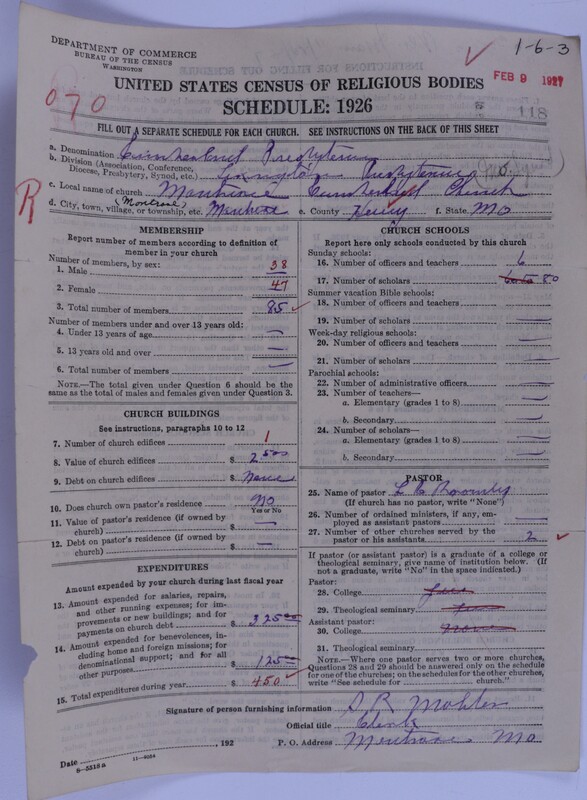 DEPARTMENT OF COMMERCE
BUREAU OF THE CENSUS
WASHINGTON
1-6-3
FEB 9 1927
070
118
UNITED STATES CENSUS OF RELIGIOUS BODIES
SCHEDULE: 1926
FILL OUT A SEPARATE SCHEDULE FOR EACH CHURCH. SEE INSTRUCTIONS ON THE BACK OF THIS SHEET
R
a. Denomination Presbyterian
b. Division (Association, Conference, Diocese, Presbytery, Synod, etc.)
c. Local name of church Montrose Church
(Montrose)
d. City, town, village, or township, etc. Montrose e. County Henry f. State MO
MEMBERSHIP
Report number of members according to definition of member in your church
Number of members, by sex:
1. Male 38
2. Female 47
3. Total number of members 85
Number of members under and over 13 years old:
4. Under 13 years of age —
5. 13 years old and over —
6. Total number of members —
NOTE.—The total given under Question 6 should be the same as the total of males and females given under Question 3.
CHURCH BUILDINGS
See instructions, paragraphs 10 to 12
7. Number of church edifices 1
8. Value of church edifices $ 2500
9. Debt on church edifices $ None
10. Does church own pastor's residence NO
Yes or No
11. Value of pastor's residence (if owned by church) $ —
12. Debt on pastor's residence (if owned by church) $ —
EXPENDITURES
Amount expended by your church during last fiscal year
13. Amount expended for salaries, repairs, and other running expenses; for improvements or new buildings; and for payments on church debt $ 325 00
14. Amount expended for benevolences, including home and foreign missions; for denominational support; and for all other purposes $ 125
15. Total expenditures during year $ 450
CHURCH SCHOOLS
Report here only schools conducted by this church
Sunday schools:
16. Number of officers and teachers 6
17. Number of scholars 80
Summer vacation Bible schools:
18. Number of officers and teachers —
19. Number of scholars —
Week-day religious schools:
20. Number of officers and teachers —
21. Number of scholars —
Parochial schools:
22. Number of administrative officers —
23. Number of teachers—
a. Elementary (grades 1 to 8) —
b. Secondary —
24. Number of scholars—
a. Elementary (grades 1 to 8) —
b. Secondary —
PASTOR
25. Name of pastor L E
(If church has no pastor, write "None")
26. Number of ordained ministers, if any, employed as assistant pastors —
27. Number of other churches served by the pastor or his assistants 2
If pastor (or assistant pastor) is a graduate of a college or theological seminary, give name of institution below. (If not a graduate, write "No" in the space indicated.)
Pastor:
28. College
29. Theological seminary
Assistant pastor:
30. College none
31. Theological seminary
NOTE.—Where one pastor serves two or more churches, Questions 28 and 29 should be answered only on the schedule for one of the churches; on the schedules for the other churches, write "See schedule for church."
Signature of person furnishing information S. R. Mohler
Official title Clerk
Date , 192 P. O. Address Montrose Mo
8-5318a 11-9034